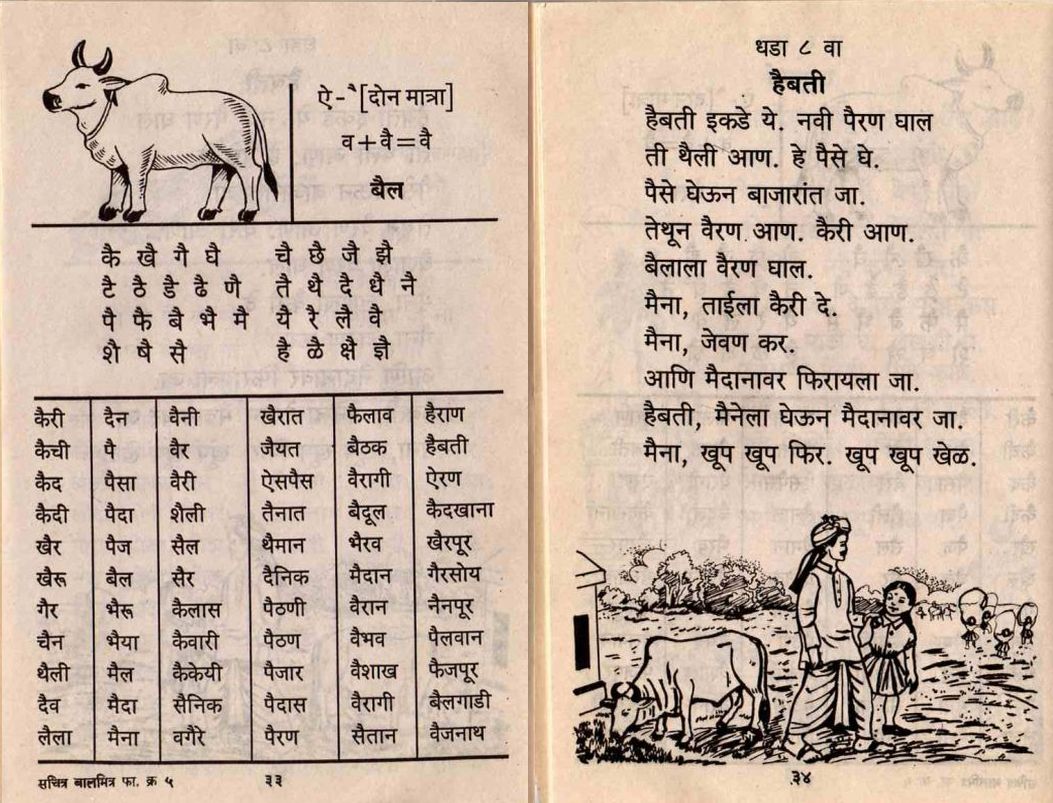 ऐ- ै [दोन मात्रा]
व + वै = वै
बैल
कै खै गै घै चै छै जै झै
टै ठै डै ढै णै तै थै दै धै नै
पै फै बै भै मै यै रै लै वै
शै षै सै है ळै क्षै ज्ञै
कैरी दैन वैनी खैरात फैलाव हैराण
कैची पै वैर जैयत बैठक हैबती
कैद पैसा वैरी ऐसपैस वैरागी ऐरण
कैदी पैदा शैली तैनात बैदूल कैदखाना
खैर पैज सैल थैमान भैरव खैरपूर
खैरू बैल सैर दैनिक मैदान गैरसोय
गैर भैरू कैलास पैठणी वैरान नैनपूर
चैन भैया कैवारी पैठण वैभव पैलवान
थैली मैल कैकेयी पैजार वैशाख फैजपूर
दैव मैदा सैनिक पैदास वैरागी बैलगाडी
लैला मैना वगैरे पैरण सैतान वैजनाथ
सचित्र बालमित्र फा. क्र ५ ३३
धडा ८ वा
हैबती
हैबती इकडे ये. नवी पैरण घाल
ती थैली आण. हे पैसे घे.
पैसे घेऊन बाजारांत जा.
तेथून वैरण आण. कैरी आण.
बैलाला वैरण घाल.
मैना, ताईला कैरी दे.
मैना, जेवण कर.
आणि मैदानावर फिरायला जा.
हैबती, मैनेला घेऊन मैदानावर जा.
मैना, खूप खूप फिर. खूप खूप खेळ.
३४